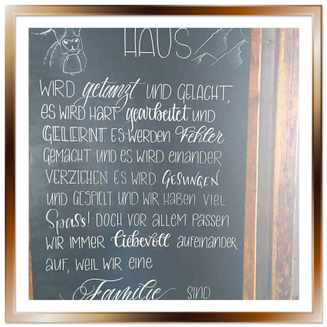 HAUS
WIRD getanzt UND GELACHT,
ES WIRD HART gearbeitet UND
GELERNT ES WERDEN Fehler
GEMACHT UND ES WIRD EINANDER
VERZIEHEN ES WIRD GESUNGEN
UND GESPIELT UND WIR HABEN VIEL
Spass! DOCH VOR ALLEM PASSEN
WIR IMMER liebevoll AUFEINANDER
AUF, WEIL WIR EINE
Familie SIND